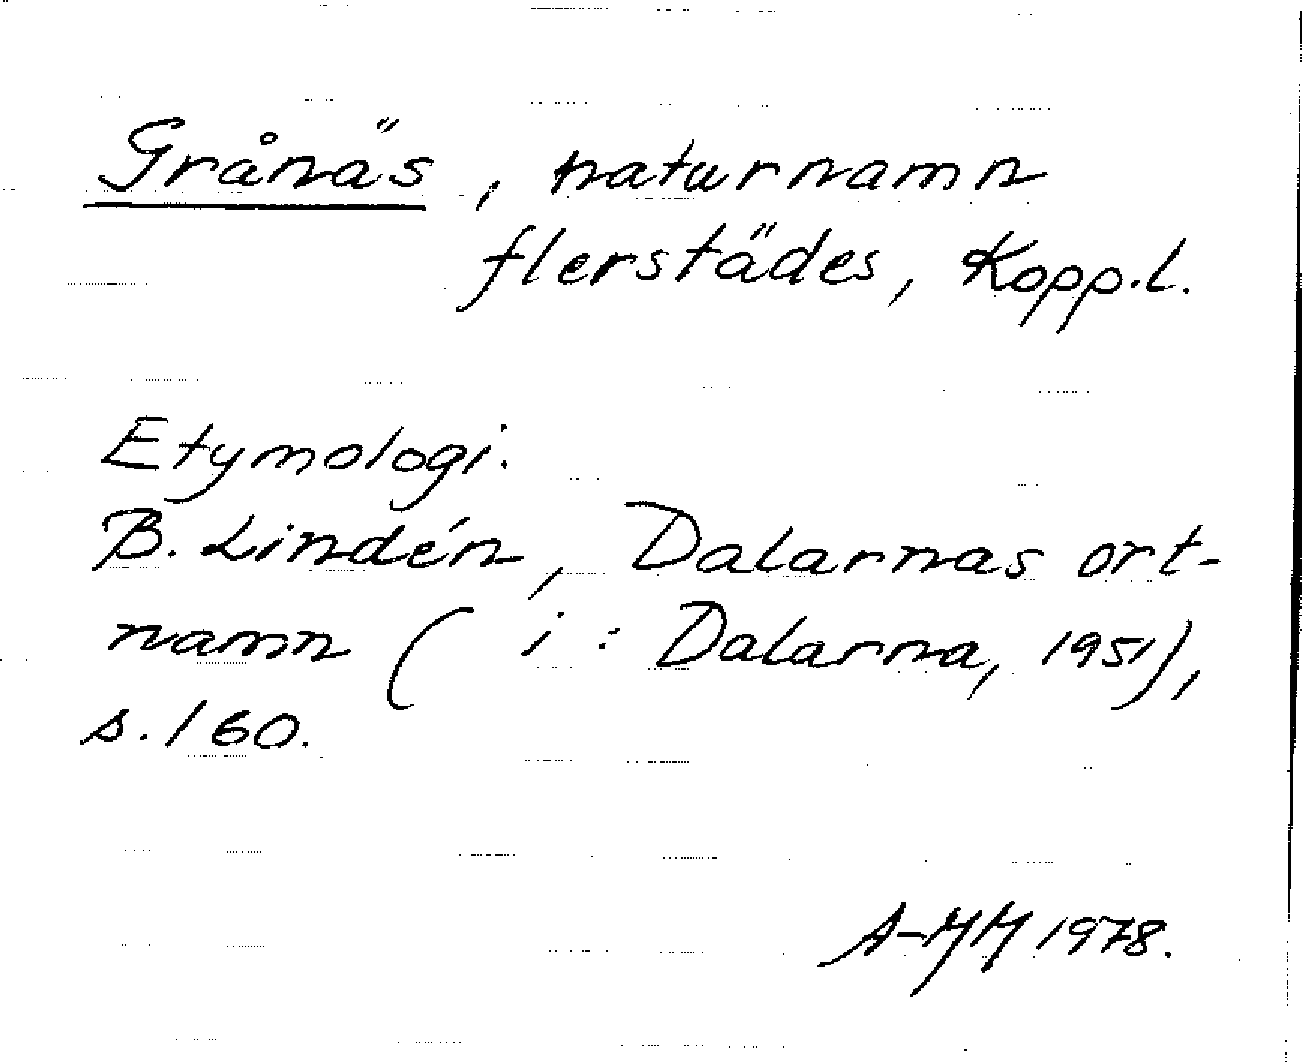 Grånäs, naturnamn
flerstädes, Kopp.l.
Etymologi:
B. Lindén, Dalarnas ort-
namn (i: Dalarna, 1951),
s. 160.
A-MM 1978.